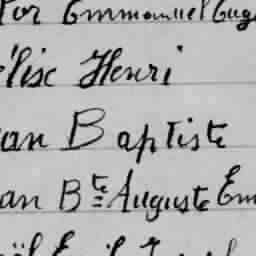 tor Emmanuel Eug
élix Henri
ean Baptiste
ean Bte Auguste Em